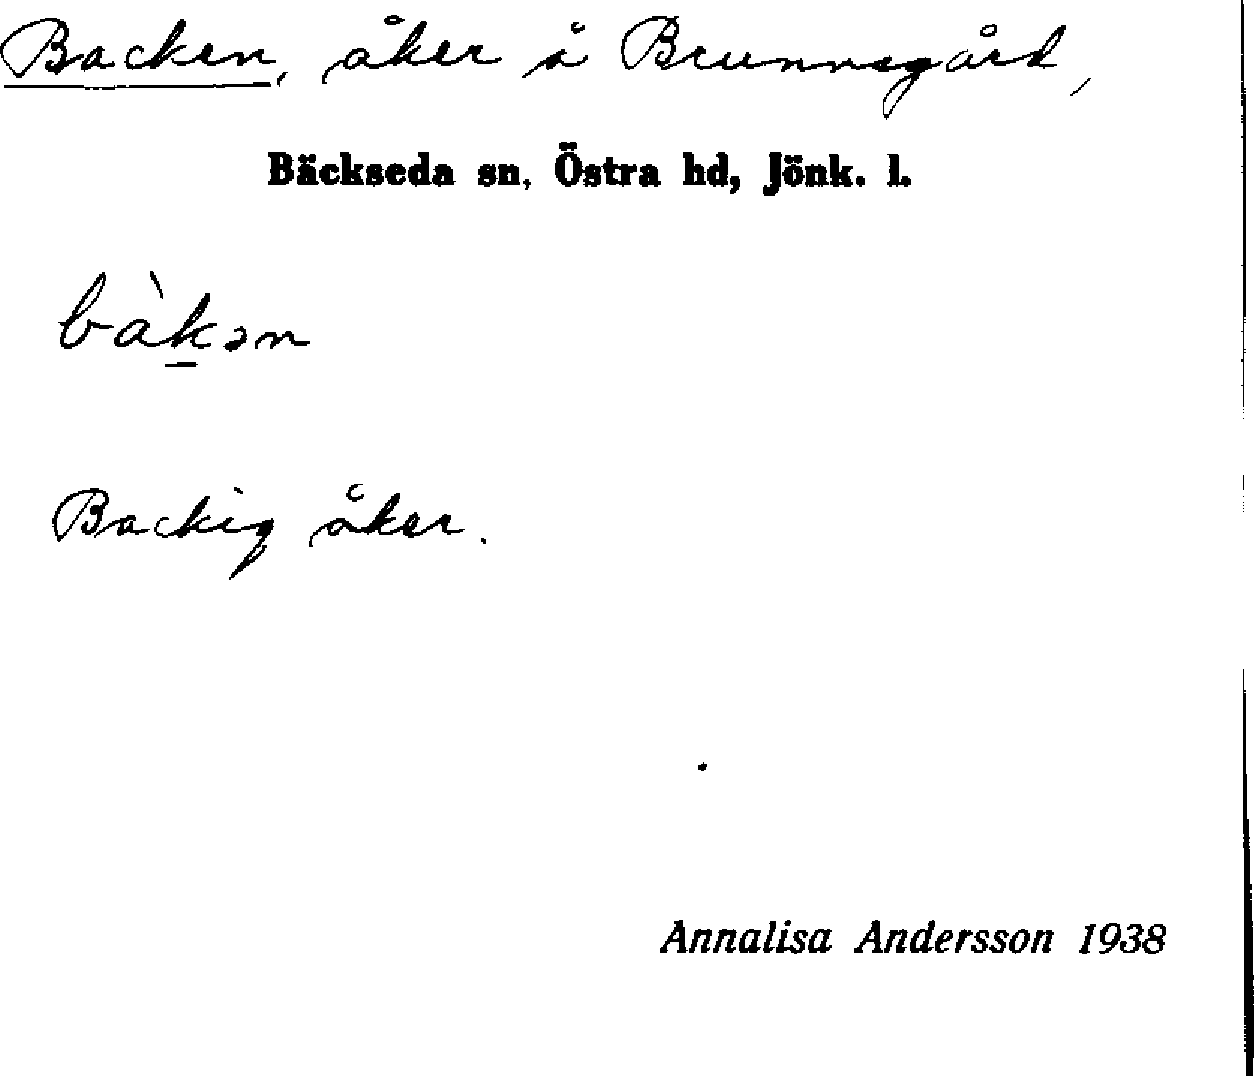 Backen, åker å Brunnsgård,
Bäckseda sn, Östra hd, Jönk. l.
bàk̲ən
Backig åker.
Annalisa Andersson 1938